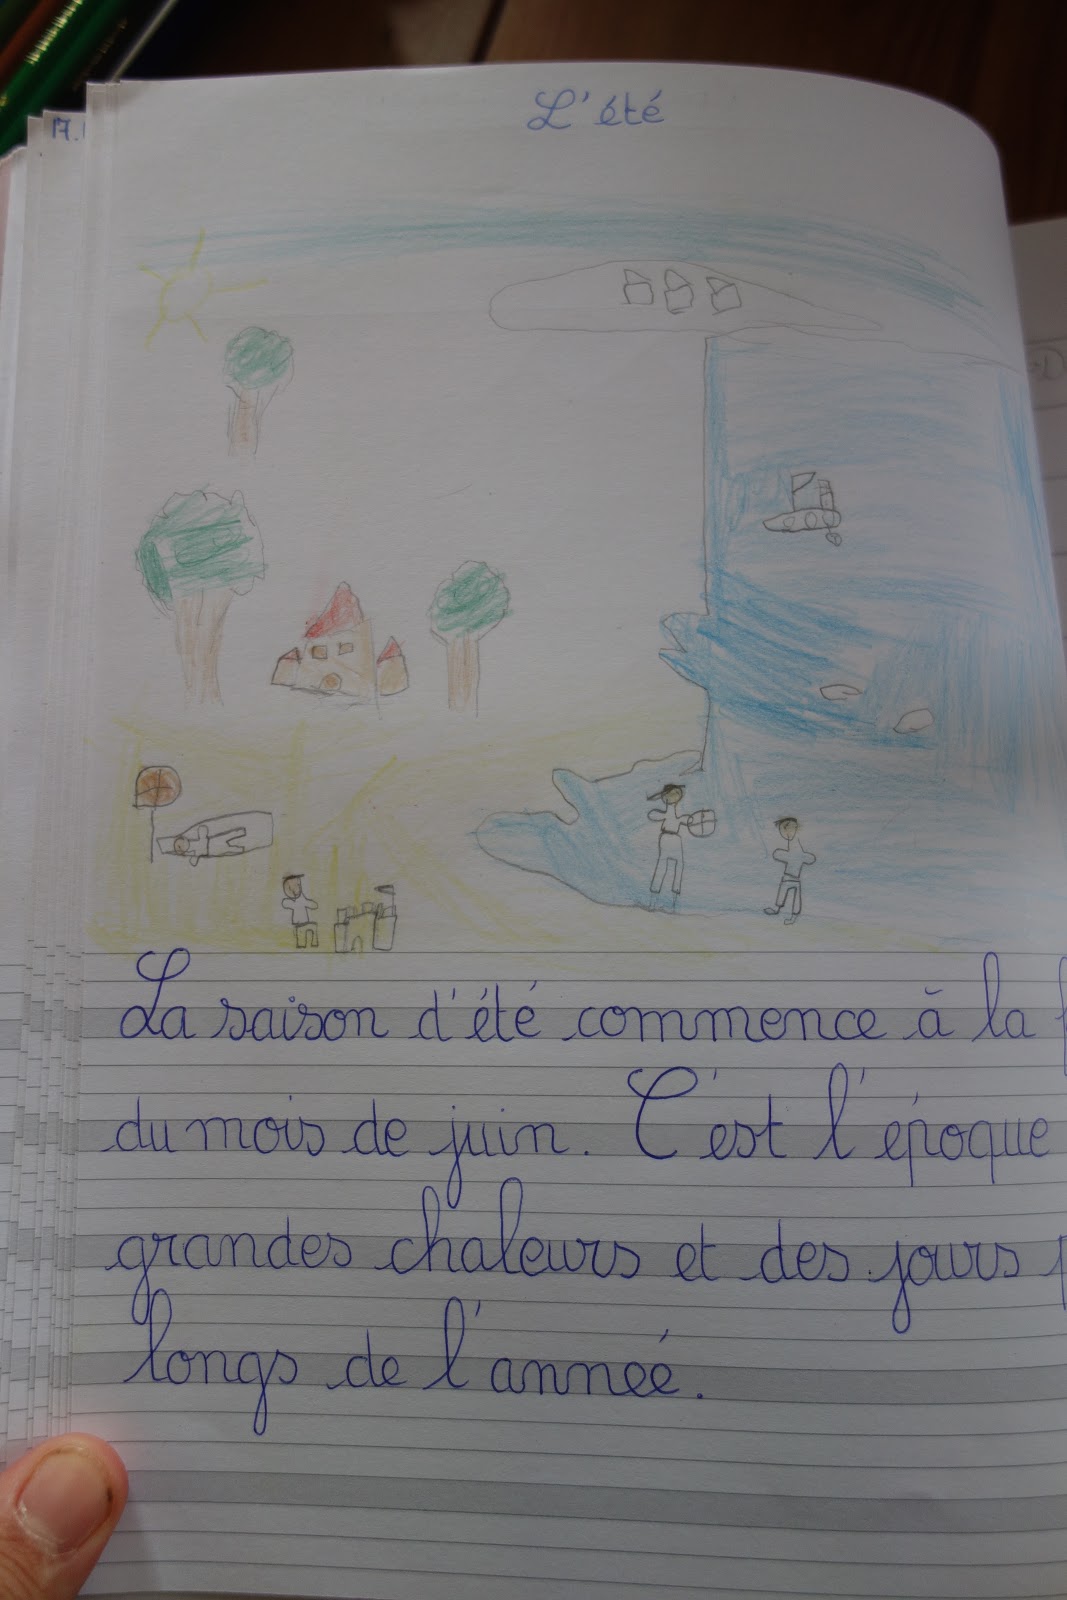 L'été
17.
La saison d'été commence à la
du mois de juin. C'est l'époque
grandes chaleurs et des jours
longs de l'année.